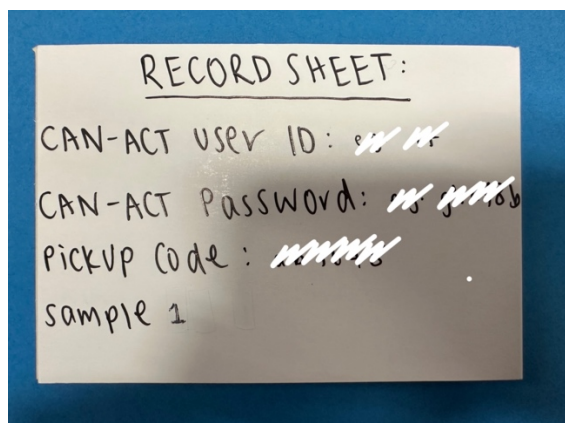 RECORD SHEET:
CAN-ACT USER ID:
CAN-ACT Password:
Pickup Code:
Sample 1